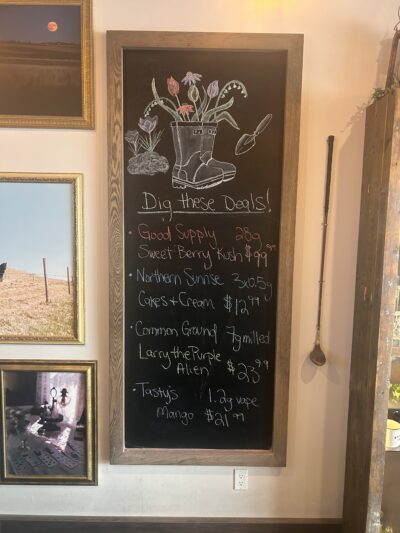 Dig these Deals!
• Good Supply 28g
Sweet Berry Kush $99.99
• Northern Sunrise 3x0.5g
Cakes + Cream $12.99
• Common Ground 7g milled
Larry the Purple
Alien $23.99
• Tasty's 1.2g vape
Mango $21.99